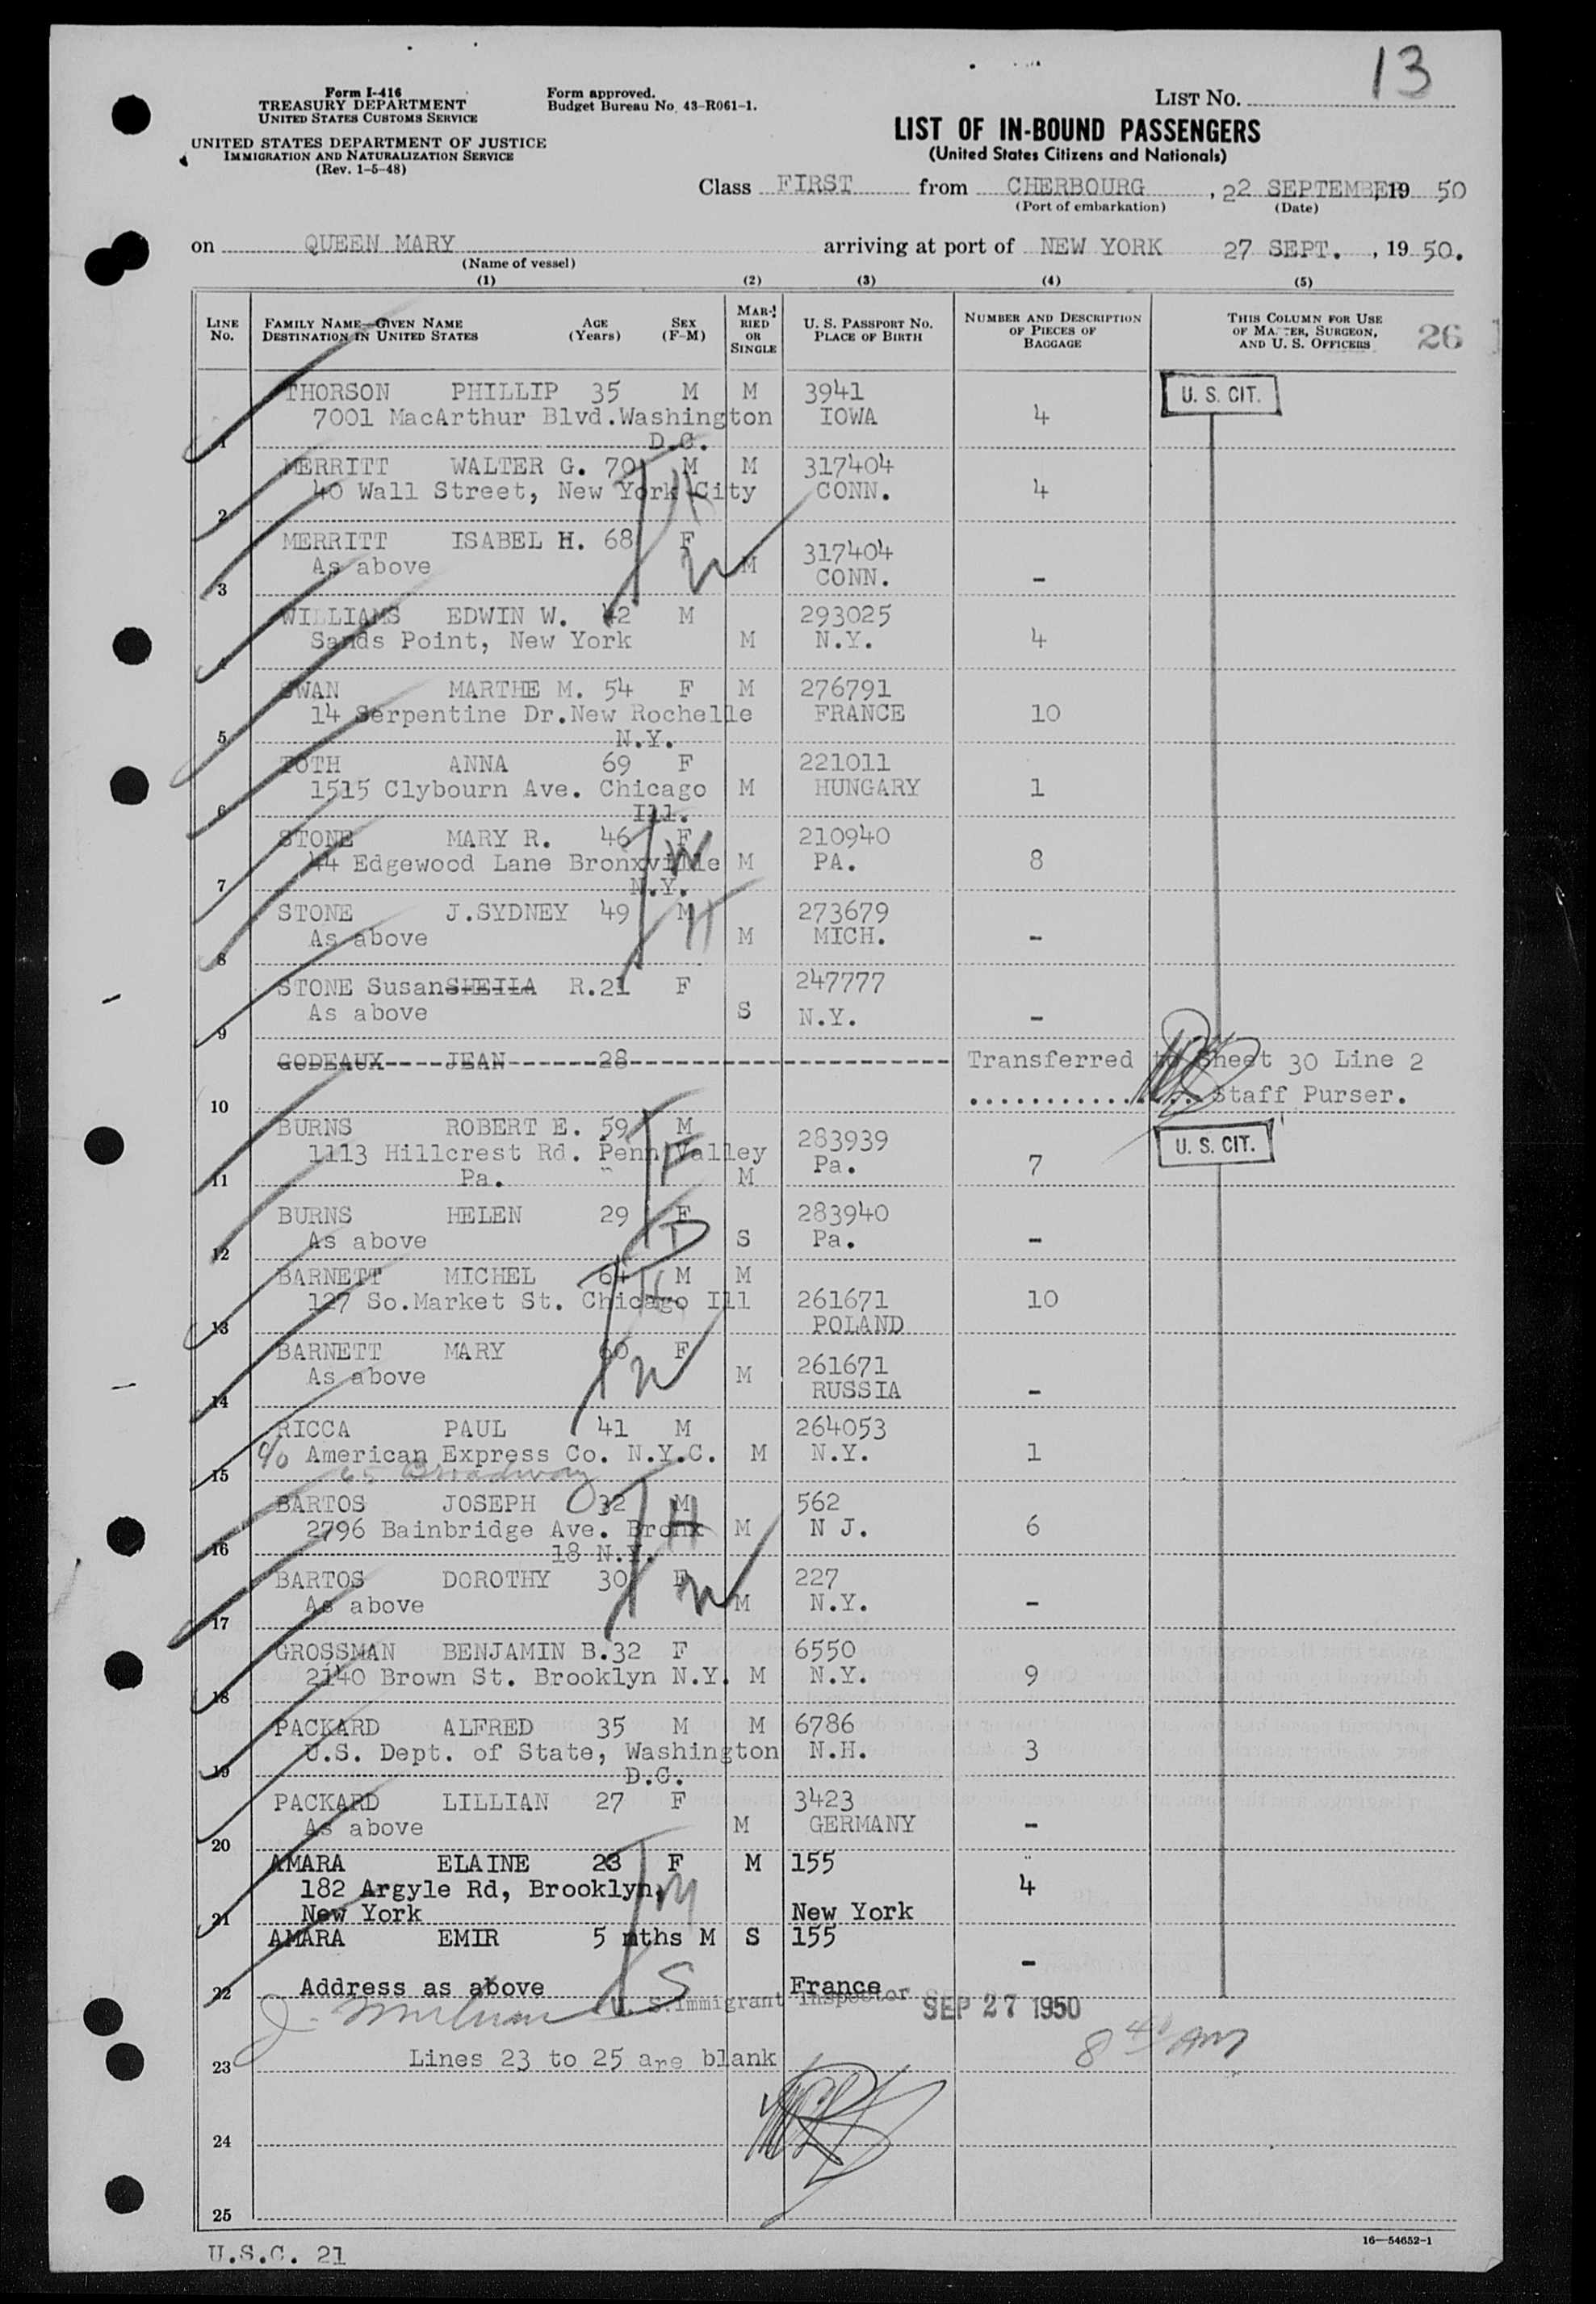 13
Form I-416
TREASURY DEPARTMENT
UNITED STATES CUSTOMS SERVICE
Form approved.
Budget Bureau No. 43-R061-1.
LIST NO.
UNITED STATES DEPARTMENT OF JUSTICE
IMMIGRATION AND NATURALIZATION SERVICE
(Rev. 1-5-48)
LIST OF IN-BOUND PASSENGERS
(United States Citizens and Nationals)
Class FIRST from CHERBOURG, 22 SEPTEMBER, 19 50
(Port of embarkation) (Date)
on QUEEN MARY arriving at port of NEW YORK 27 SEPT., 19 50.
(Name of vessel)
(1) (2) (3) (4) (5)
LINE NO. FAMILY NAME—GIVEN NAME DESTINATION IN UNITED STATES AGE (Years) SEX (F-M) MARRIED OR SINGLE U. S. PASSPORT NO. PLACE OF BIRTH NUMBER AND DESCRIPTION OF PIECES OF BAGGAGE THIS COLUMN FOR USE OF MASTER, SURGEON, AND U. S. OFFICERS 26
THORSON PHILLIP 35 M M 3941 U. S. CIT.
7001 MacArthur Blvd.Washington IOWA 4
1 D.C.
MERRITT WALTER G. 70 M M 317404
40 Wall Street, New York City CONN. 4
2
MERRITT ISABEL H. 68 F 317404
As above M CONN. -
3
WILLIAMS EDWIN W. 42 M 293025
Sands Point, New York M N.Y. 4
4
SWAN MARTHE M. 54 F M 276791
14 Serpentine Dr.New Rochelle FRANCE 10
5 N.Y.
TOTH ANNA 69 F 221011
1515 Clybourn Ave. Chicago M HUNGARY 1
6 Ill.
STONE MARY R. 46 F 210940
44 Edgewood Lane Bronxville M PA. 8
7 N.Y.
STONE J.SYDNEY 49 M 273679
As above M MICH. -
8
STONE Susan SHEILA R.21 F 247777
As above S N.Y. -
9
GODEAUX----JEAN------28 Transferred to Sheet 30 Line 2
10 Staff Purser.
BURNS ROBERT E. 59 M 283939 U. S. CIT.
1113 Hillcrest Rd. Penn Valley Pa. 7
11 Pa. M
BURNS HELEN 29 F 283940
As above S Pa. -
12
BARNETT MICHEL 64 M M
127 So.Market St. Chicago Ill 261671 10
13 POLAND
BARNETT MARY 60 F 261671
As above M RUSSIA -
14
RICCA PAUL 41 M 264053
c/o American Express Co. N.Y.C. M N.Y. 1
15 65 Broadway
BARTOS JOSEPH 32 M 562
2796 Bainbridge Ave. Bronx M N J. 6
16 18 N.Y.
BARTOS DOROTHY 30 F 227
As above M N.Y. -
17
GROSSMAN BENJAMIN B.32 F 6550
2140 Brown St. Brooklyn N.Y. M N.Y. 9
18
PACKARD ALFRED 35 M M 6786
U.S. Dept. of State, Washington N.H. 3
19 D.C.
PACKARD LILLIAN 27 F 3423
As above M GERMANY -
20
AMARA ELAINE 23 F M 155
182 Argyle Rd, Brooklyn, 4
21 New York New York
AMARA EMIR 5 mths M S 155
-
22 Address as above France
U. S. Immigrant Inspector SEP 27 1950
8 40 AM
23 Lines 23 to 25 are blank
24
25
16—54652-1
U.S.C. 21